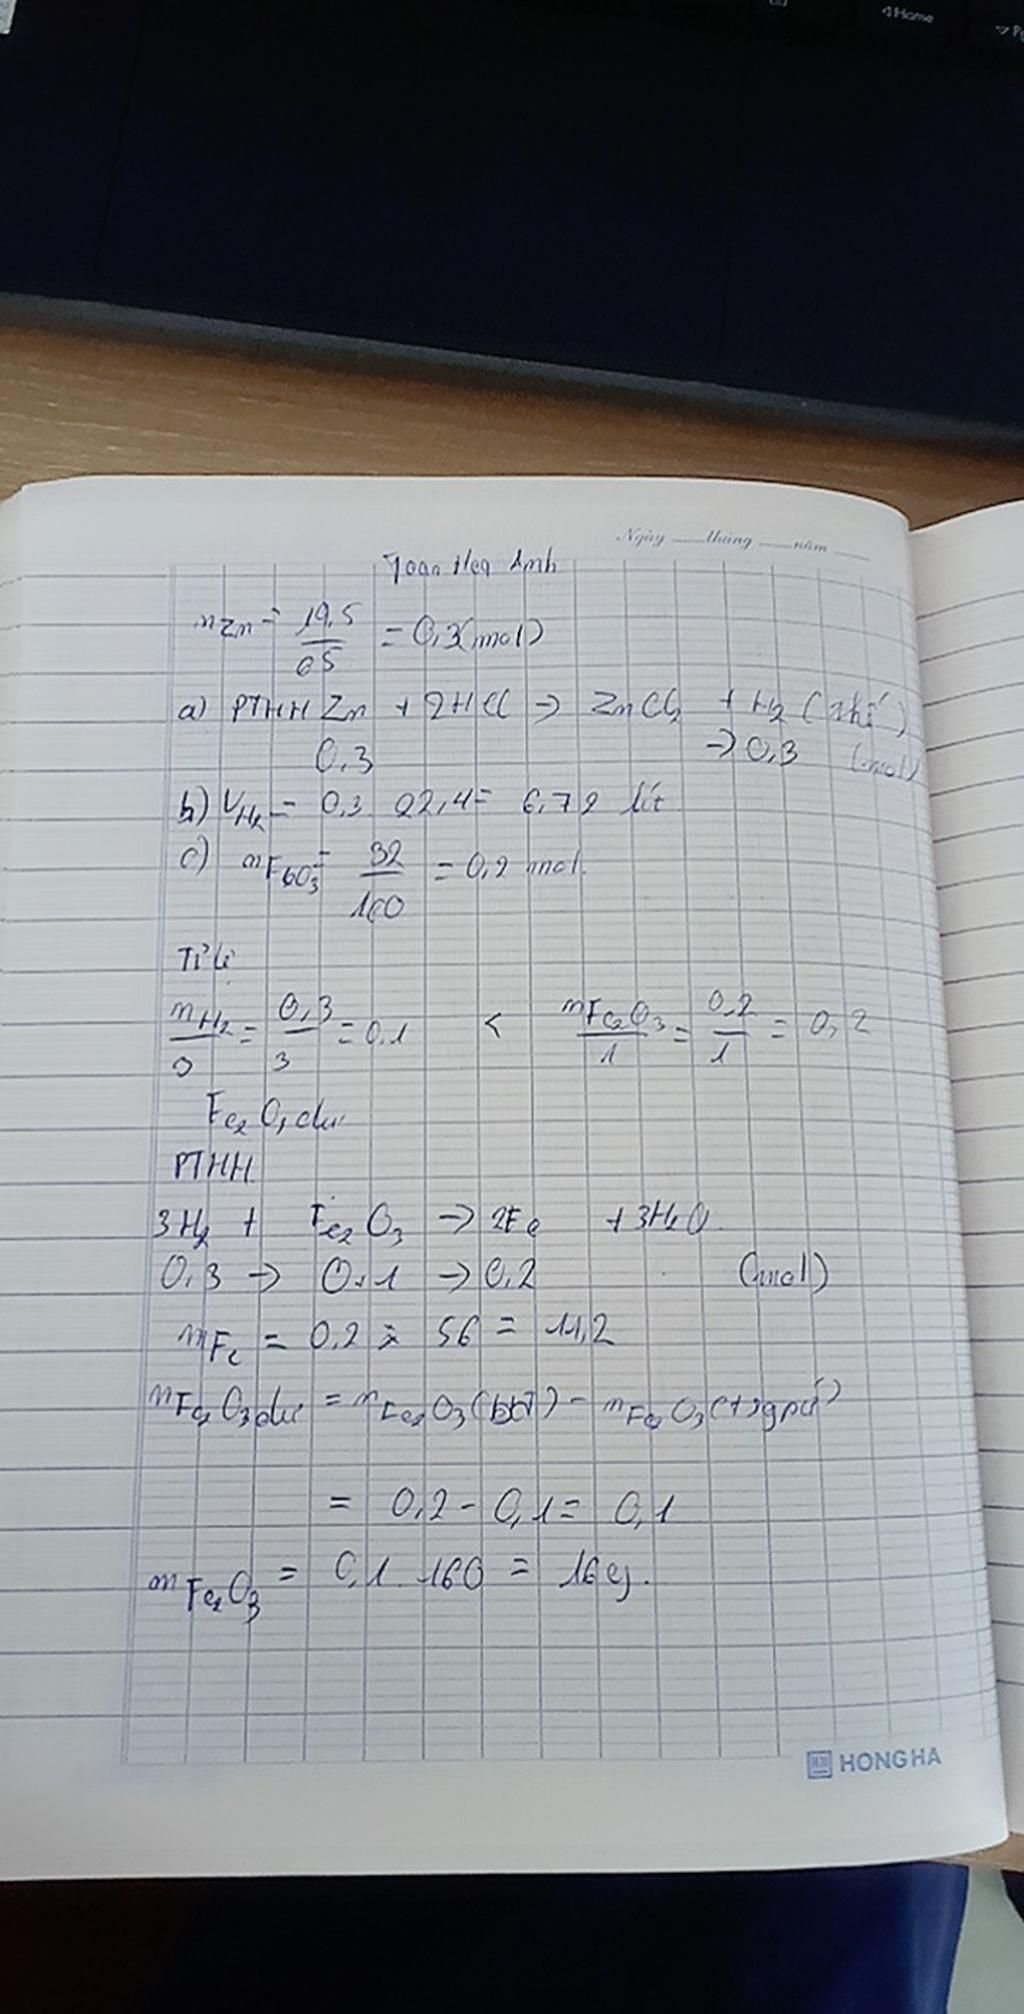 Home
Ngày tháng năm
nZn = 19,5/65 = 0,3(mol)
a) PTHH Zn + 2HCl → ZnCl2 + H2 (khí)
0,3 → 0,3 (mol)
b) VH2 = 0,3 22,4 = 6,72 lít
c) nFe2O3 = 32/160 = 0,2 mol
Tỉ lệ
nH2/3 = 0,3/3 = 0,1 < nFe2O3/1 = 0,2/1 = 0,2
Fe2O3 dư
PTHH
3H2 + Fe2O3 → 2Fe + 3H2O
0,3 → 0,1 → 0,2 (mol)
mFe = 0,2 x 56 = 11,2
nFe2O3 dư = nFe2O3(bđ) - nFe2O3(pứ)
= 0,2 - 0,1 = 0,1
mFe2O3 = 0,1 160 = 16g.
HONG HA